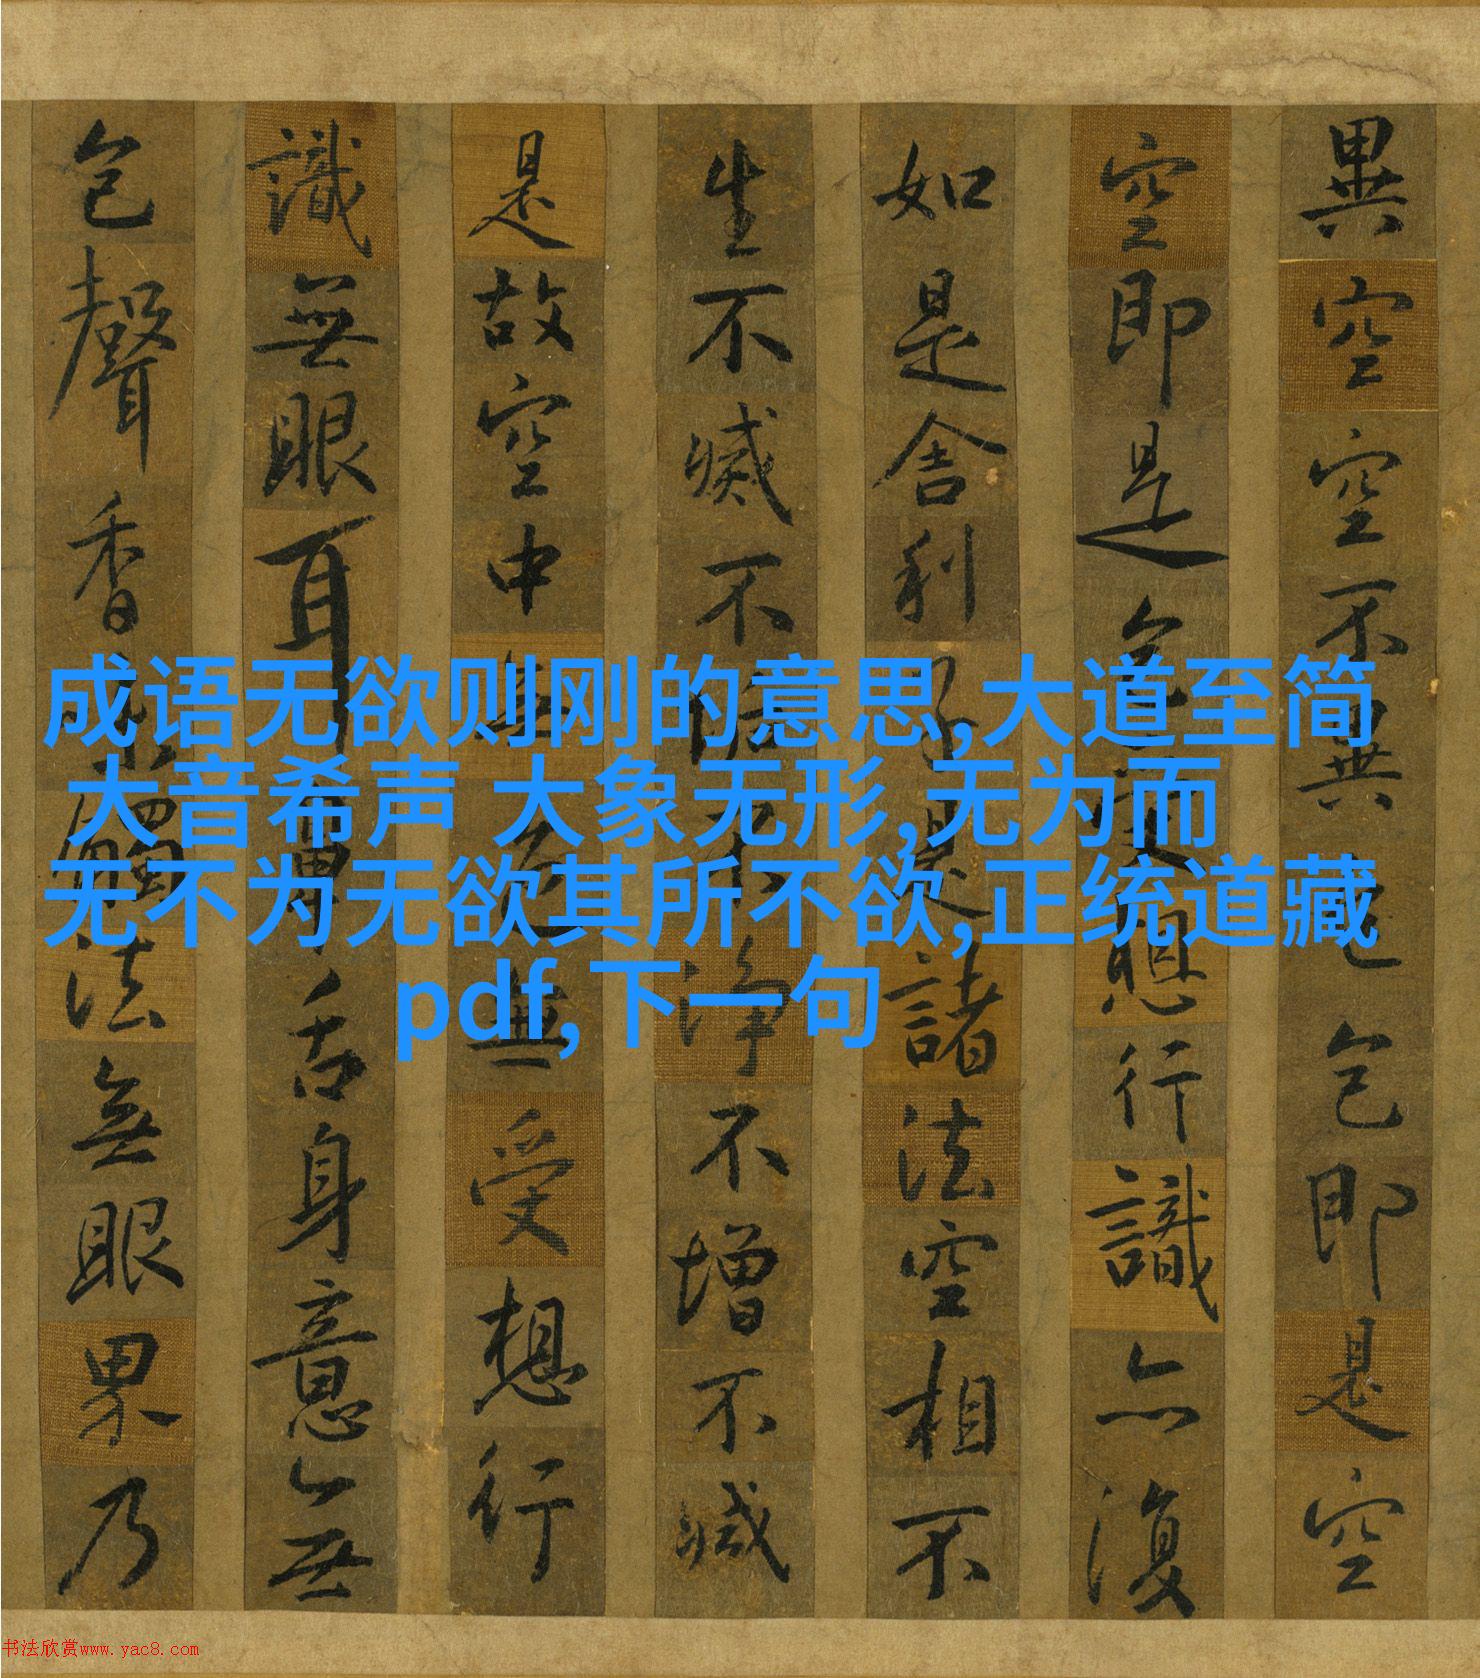 異空空不異色色即是空
空即是色受想行識亦復
如是舍利子是諸法空相不
生不滅不垢不淨不增不減
是故空中無色無受想行
識無眼耳鼻舌身意無
色聲香味觸法無眼界乃
成语无欲则刚的意思,大道至简
大音希声 大象无形,无为而
无不为无欲其所不欲,正统道藏
pdf,下一句
书法欣赏www.yac8.com